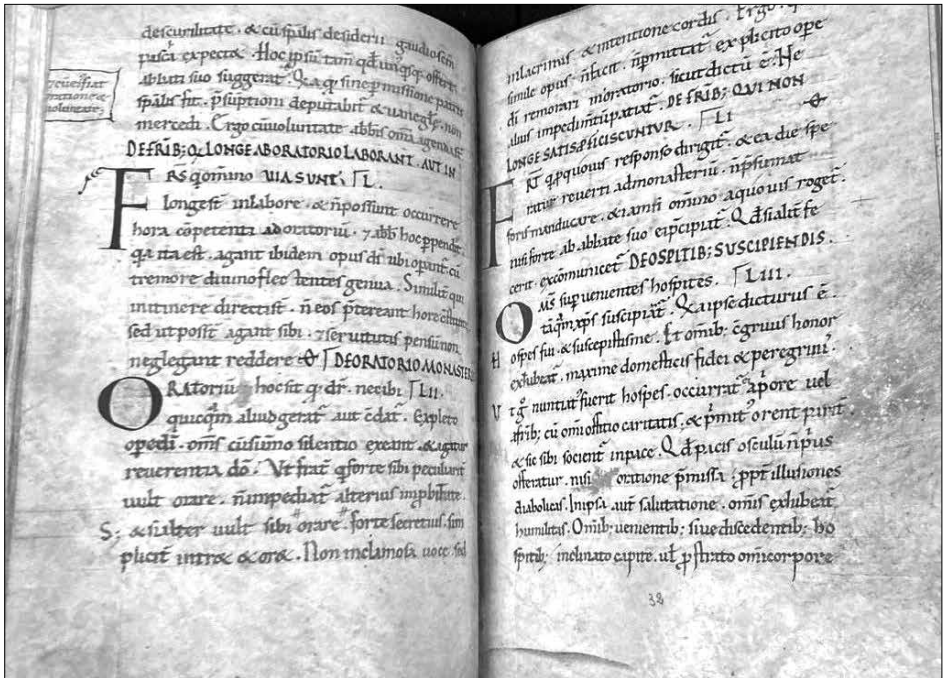 descurilitate . & cū sp̄alis desiderii gaudio s̄cm
pasca expect& . Hoc ipsū tam̄ qd̄ unꝰqsq; offert .
abbati suo suggerat . Quia qd̄ sine p̄missione patris
sp̄alis fit . p̄sūptioni deputabit̄ & uanęglę . non
mercedi . Ergo cū uoluntate abb̄is om̄a agenda s̄t
DE FRIB; Q̄ LONGE AB ORATORIO LABORANT . AUT IN
FRS q̄ om̄ino UIA SUNT; L .
longe st̄ in labore . & n̄ possunt occurrere
hora cōpetenti ad oratoriū . ⁊ abb̄ hoc ꝑpendit .
qa ita est . agant ibidem opus d̄i ubi operant̄ . cū
tremore diuino flectentes genua . Similit̄ qui
in itinere directi st̄ . n̄ eos p̄tereant horę cstitutę
sed ut poss̄t agant sibi . ⁊ seruitutis pensū non
neglegant reddere DE ORATORIO MONASTERII
ORAtoriū hoc sit qd̄ dr̄ . nec ibi LII .
quicqm̄ aliud gerat̄ aut c̄dat̄ . Expleto
ope di . om̄s cū sūmo silentio exeant . & agat̄
reuerentia d̄o . Ut frat̄ q̄ forte sibi peculiarit̄
uult orare . n̄ impediat̄ alterius inp̄bitate .
S; & si aliter uult sibi orare . forte secretius . sim
plicit̄ intr& & or& . Non in clamosa uoce . sed
in lacrimis & intentione cordis . Ergo q
simile opus n̄ facit . n̄ p̄mittat̄ explicito ope
di remorari in oratorio . sicut dictū ē . Ne
alius impedimtū patiat̄ . DE FRIB; QUI NON
LONGE SATIS PFICISCUNTUR . LI
FRT̄ q̄ ꝑ quouis responso dirigit̄ . & ea die spe
ratur reuerti ad monasteriū . n̄ p̄sumat
foris manducare . & iamsi om̄ino a quouis roget̄ .
nisi forte ab abbate suo ei p̄cipiat̄ . Qd̄ si alit̄ fe
cerit . excomunicet̄ DE OSPITIB; SUSCIPIENDIS .
OM̄S supuenientes hospites . LIII .
tāqm̄ xp̄s suscipiat̄ . Quia ipse dicturus ē .
Hospes fui . & suscepistis me . Et omib; c̄gruus honor
exhibeat̄ . maxime domesticis fidei & peregrinis .
Ut g̊ nuntiatꝰ fuerit hospes . occurrat̄ ei a p̄ore uel
a frib; cū om̄i offitio caritatis . & p̄mit̄ orent parit̄ .
& sic sibi socient̄ in pace . Qd̄ pacis osculū n̄ p̄us
offeratur . nisi oratione p̄missa . ppt̄ illusiones
diabolicas . In ipsa aut̄ salutatione . om̄is exhibeat̄
humilitas . Omib; uenientib; siue discedentib; ho
spitib; inclinato capite . ul̄ p̄strato om̄i corpore
38